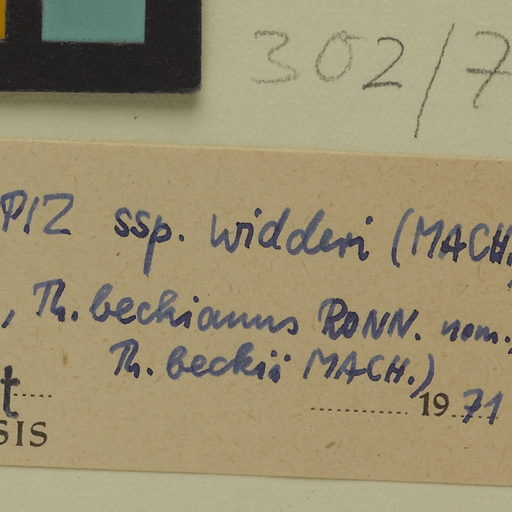 302/7
PIZ ssp. widderi (MACH.)
, Th. beckianus RONN. nom.,
Th. beckii MACH.)
t
19 71
SIS